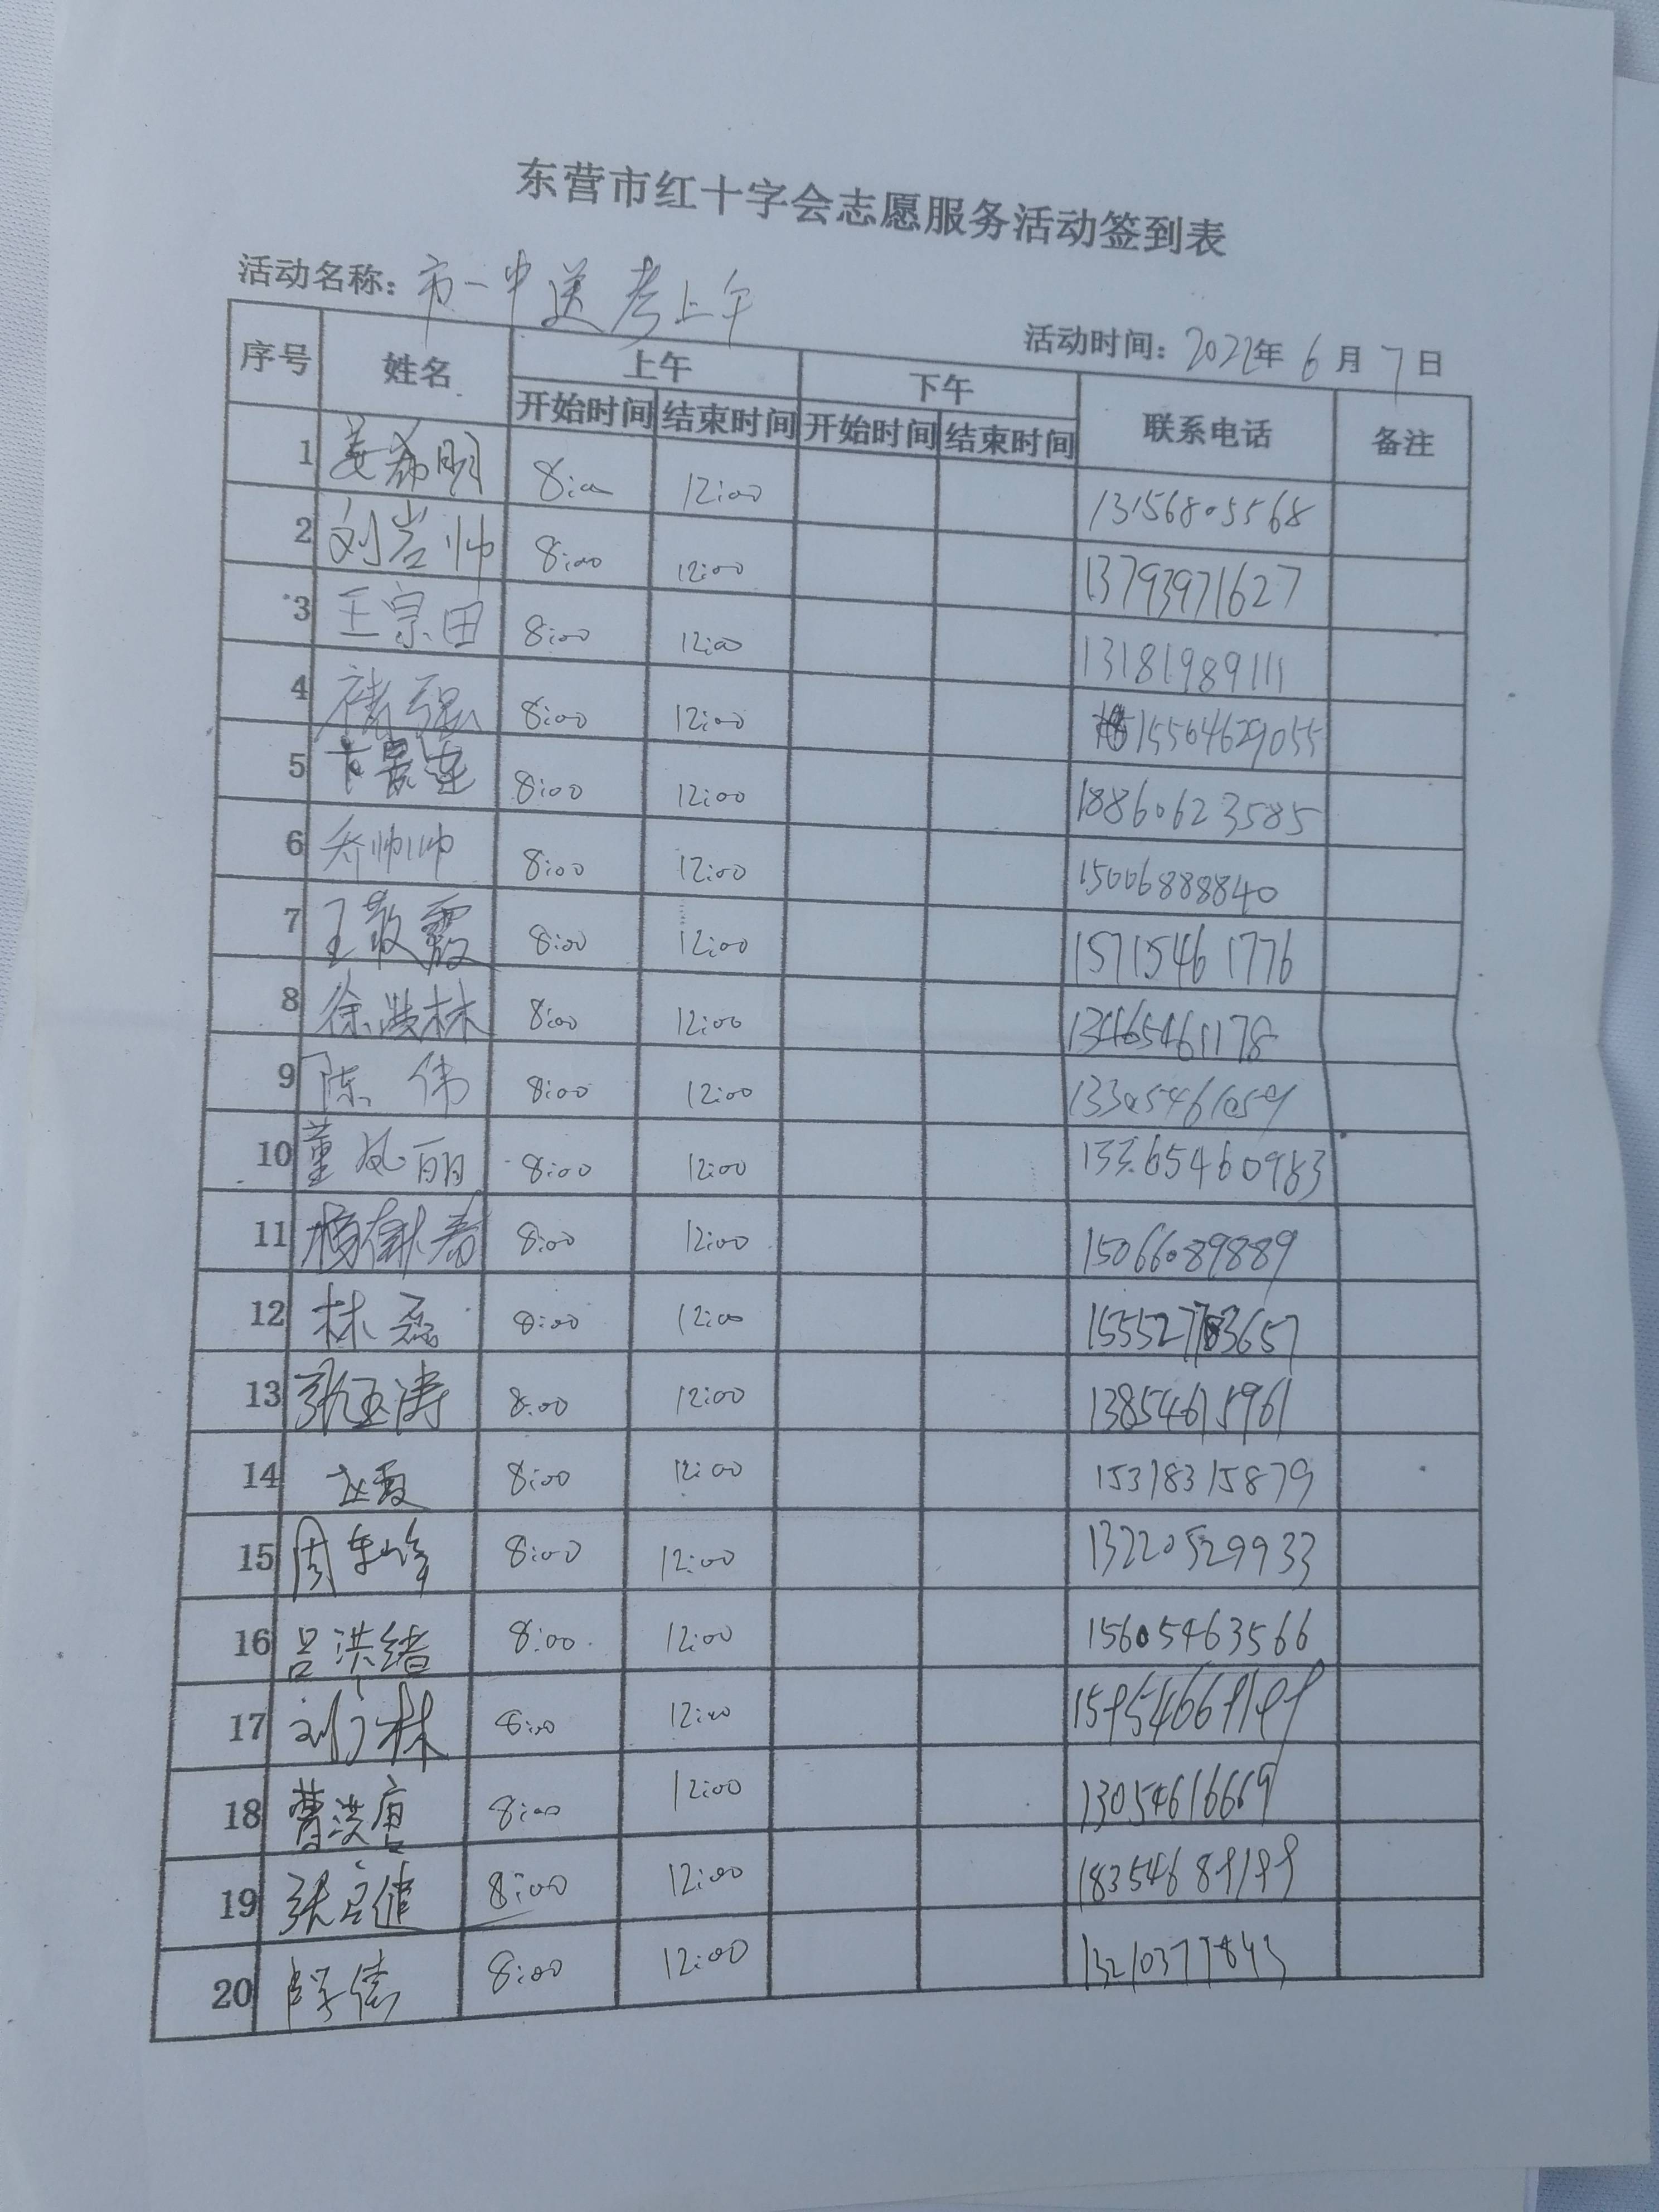 东营市红十字会志愿服务活动签到表
活动名称：市一中送考上午
活动时间：2022年6月7日
序号 姓名 上午 下午 联系电话 备注
开始时间 结束时间 开始时间 结束时间
1 姜希明 8:00 12:00 13156805568
2 刘岩帅 8:00 12:00 13793971627
3 王宗田 8:00 12:00 13181989111
4 褚强 8:00 12:00 15564629055
5 8:00 12:00 18860623585
6 乔帅帅 8:00 12:00 15006888840
7 王敬霞 8:00 12:00 15715461776
8 徐洪林 8:00 12:00 13465461178
9 陈伟 8:00 12:00 13305461059
10 董凤丽 8:00 12:00 13365460983
11 杨献春 8:00 12:00 15066089889
12 林磊 8:00 12:00
13 张玉涛 8:00 12:00 13854615961
14 赵霞 8:00 12:00 15318315879
15 周东峰 8:00 12:00 13220529933
16 吕洪绪 8:00 12:00 15605463566
17 刘广林 8:00 12:00
18 曹洪唐 8:00 12:00 13054616669
19 8:00 12:00 18354689199
20 8:00 12:00